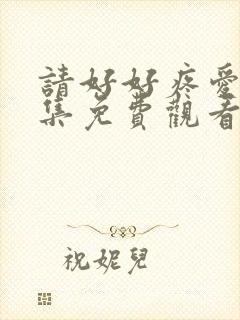 請好好疼愛
集免費觀看
祝妮兒